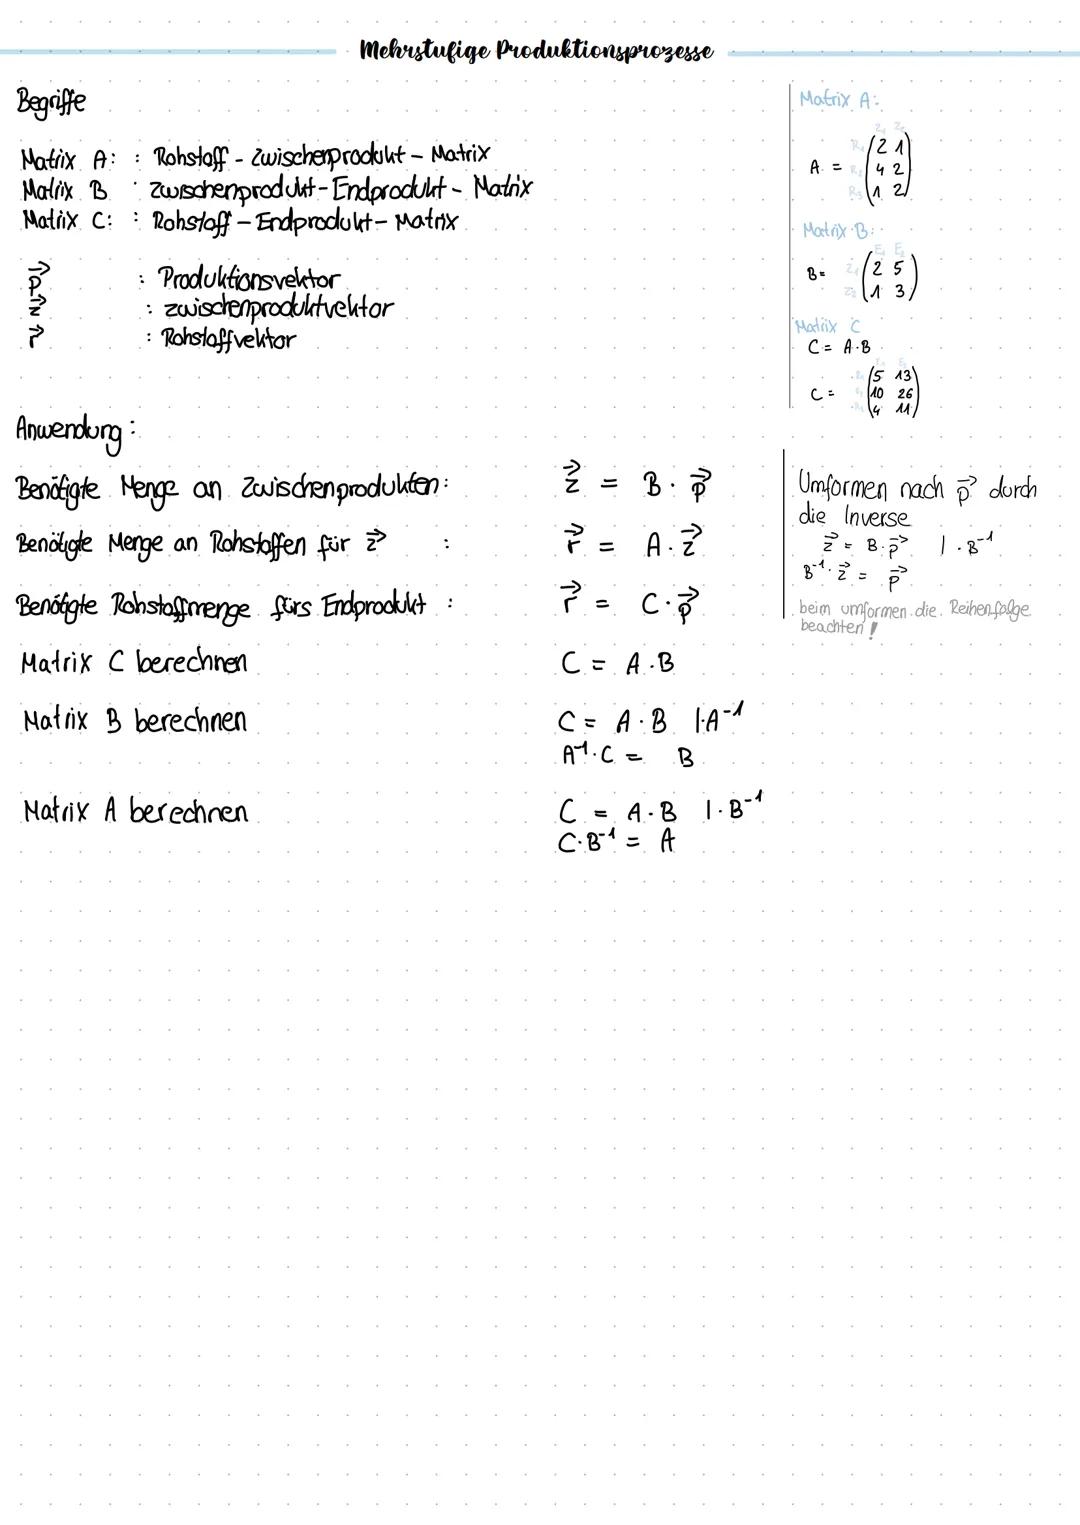 Mehrstufige Produktionsprozesse
Begriffe
Matrix A: : Rohstoff - Zwischenprodukt - Matrix
Matrix B : Zwischenprodukt - Endprodukt - Matrix
Matrix C: : Rohstoff - Endprodukt - Matrix
p⃗ : Produktionsvektor
z⃗ : Zwischenproduktvektor
r⃗ : Rohstoffvektor
Matrix A:
Z₁ Z₂
R₁ 2 1
A = R₂ 4 2
R₃ 1 2
Matrix B:
E₁ E₂
B = Z₁ 2 5
Z₂ 1 3
Matrix C
C = A·B
E₁ E₂
R₁ 5 13
C = R₂ 10 26
R₃ 4 11
Anwendung:
Benötigte Menge an Zwischenprodukten: z⃗ = B · p⃗
Benötigte Menge an Rohstoffen für z⃗ : r⃗ = A · z⃗
Benötigte Rohstoffmenge fürs Endprodukt : r⃗ = C · p⃗
Matrix C berechnen C = A · B
Matrix B berechnen C = A · B |·A⁻¹
A⁻¹·C = B
Matrix A berechnen C = A · B |·B⁻¹
C·B⁻¹ = A
Umformen nach p⃗ durch
die Inverse
z⃗ = B · p⃗ | · B⁻¹
B⁻¹ · z⃗ = p⃗
beim umformen die Reihenfolge
beachten !